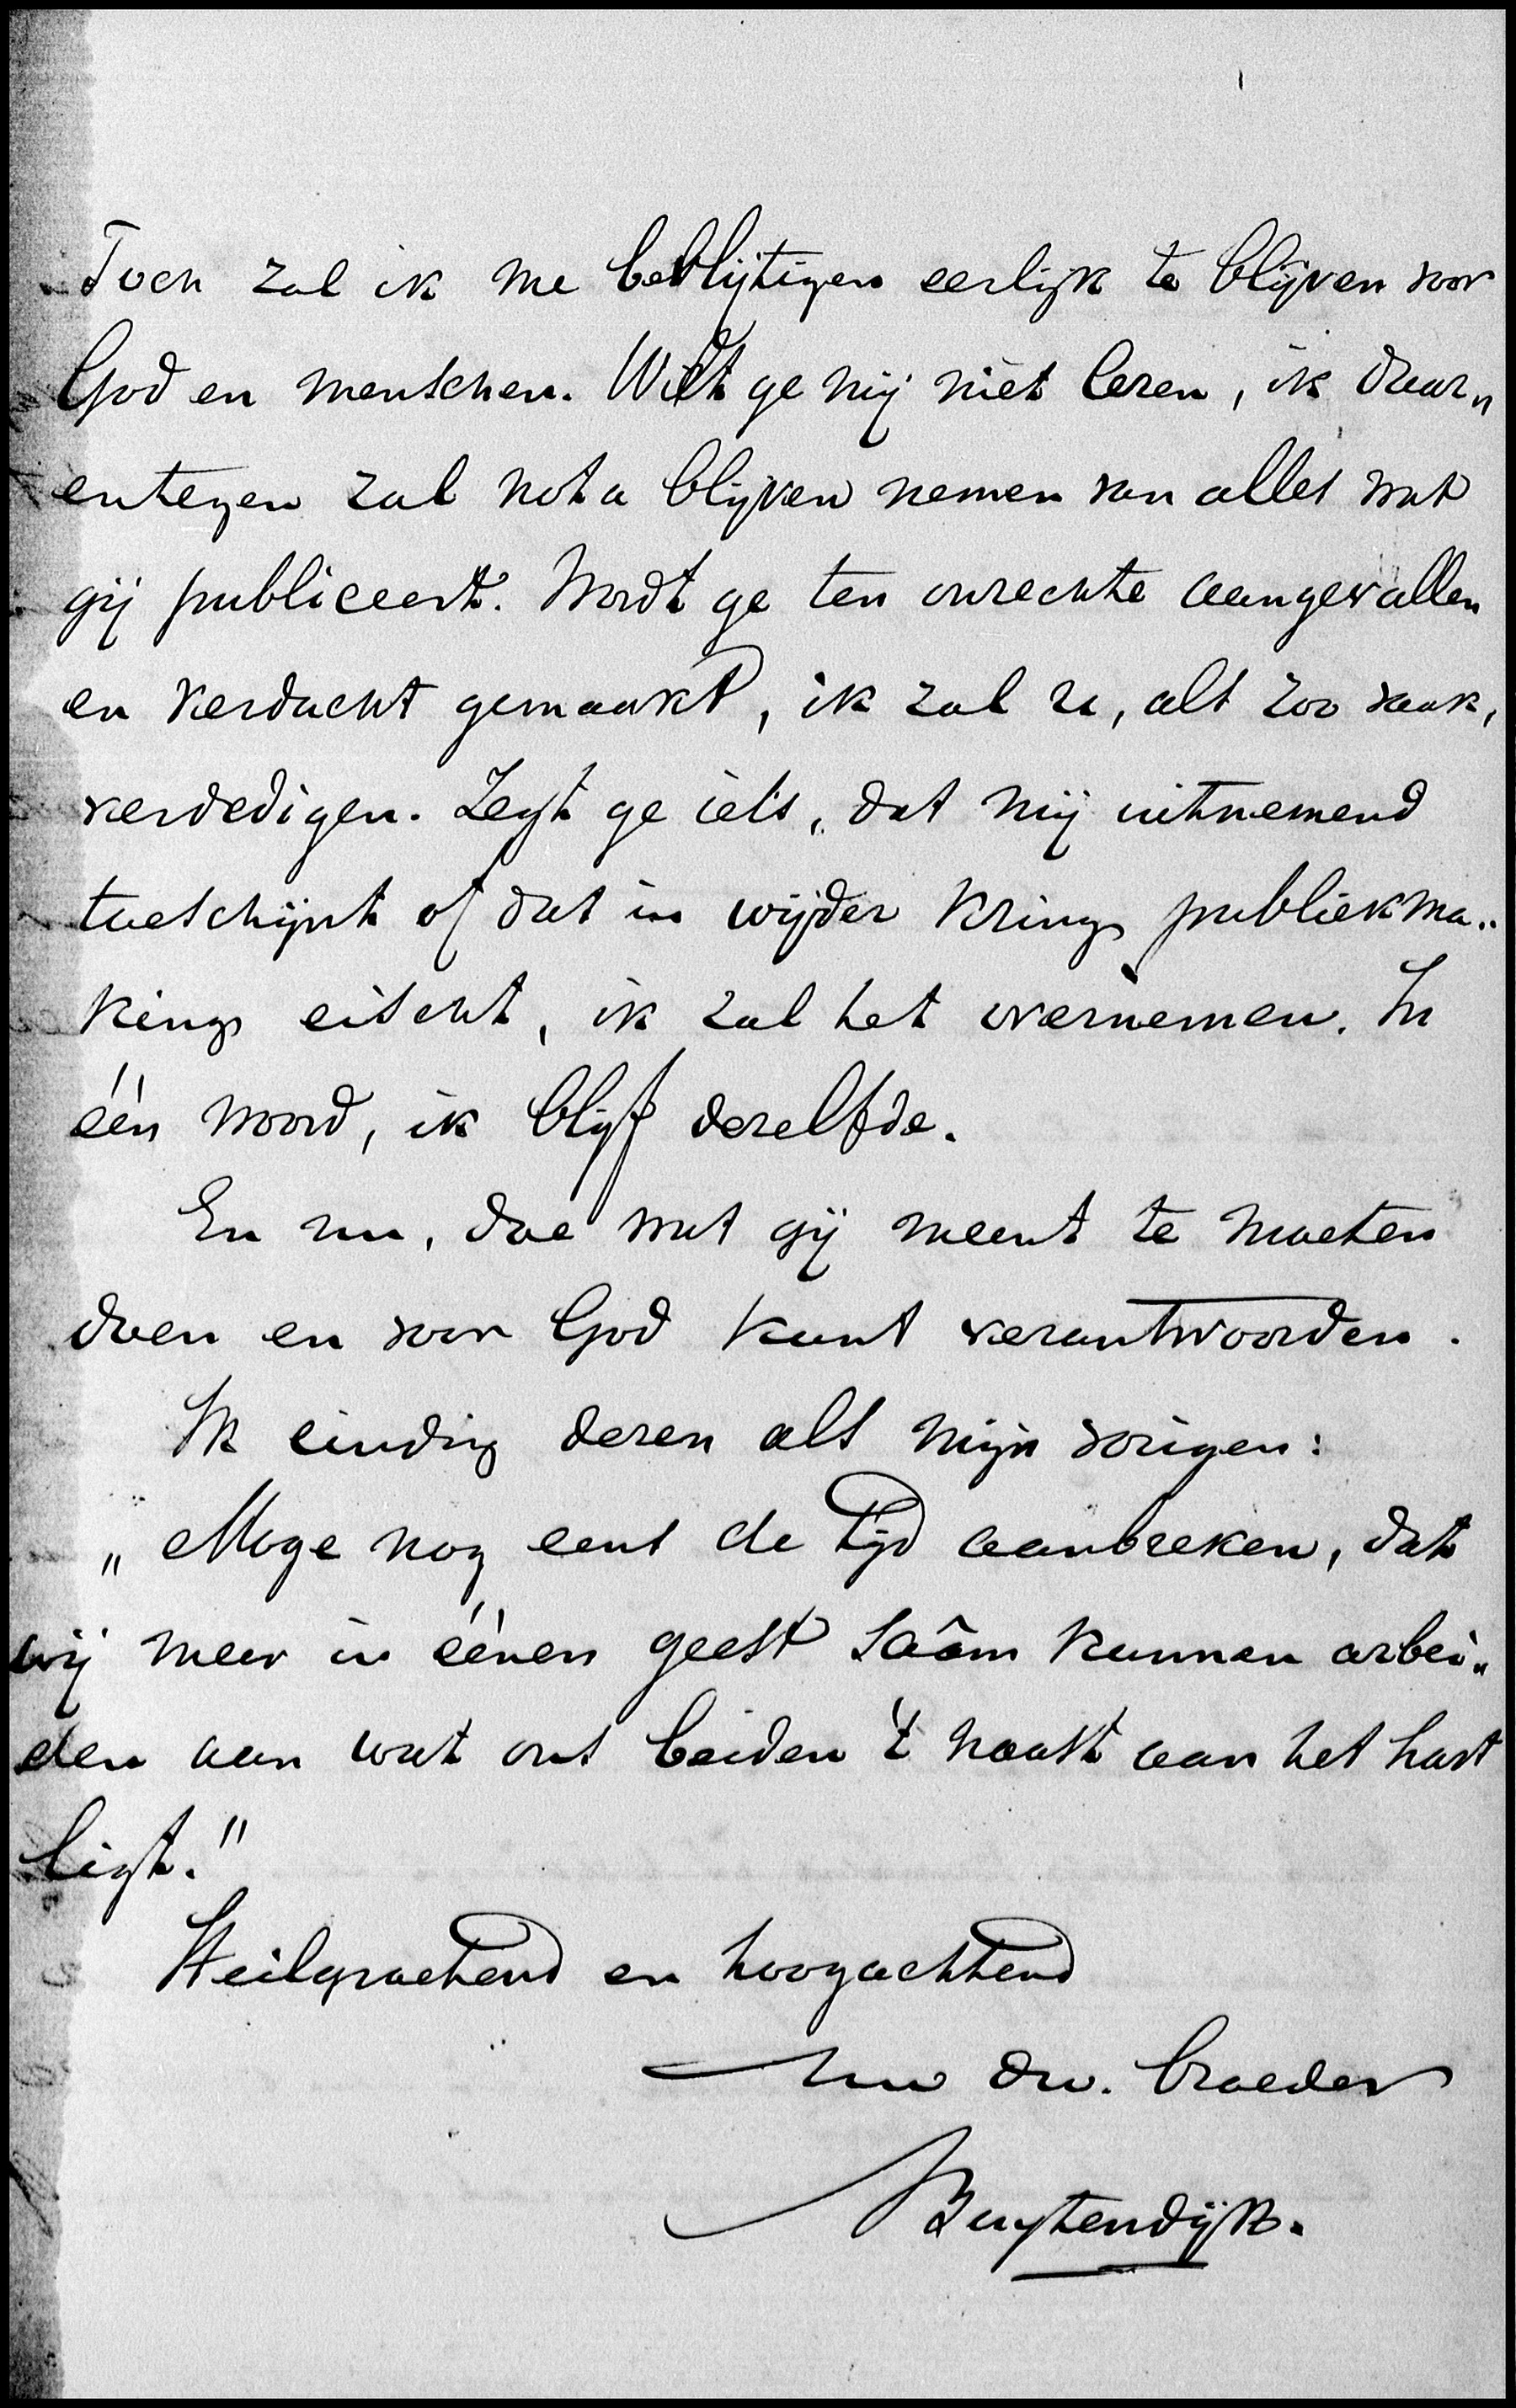 Toch zal ik me bevlijtigen eerlijk te blijven voor
God en menschen. Wilt ge mij niet lezen, ik daar„
entegen zal nota blijven nemen van alles wat
gij publiceert. Wordt ge ten onrechte aangevallen
en verdacht gemaakt, ik zal u, als zoo vaak,
verdedigen. Zegt ge iets, dat mij uitnemend
toeschijnt of dat in wijder kring publiekma„
king eischt, ik zal het overnemen. In
één woord, ik blijf dezelfde.
En nu, doe wat gij meent te moeten
doen en voor God kunt verantwoorden.
Ik eindig dezen als mijn vorigen:
„Moge nog eens de tijd aanbreken, dat
wij meer in éénen geest saâm kunnen arbei„
den aan wat ons beiden 't naast aan het hart
ligt."
Heilgroetend en hoogachtend
Uw dw. broeder
Buytendijk.